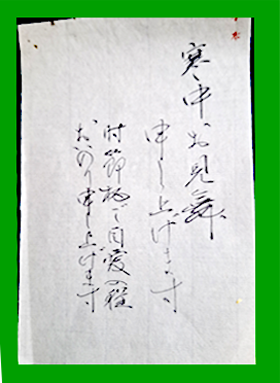 寒中お見舞
申し上げます
時節柄ご自愛の程
お祈り申し上げます